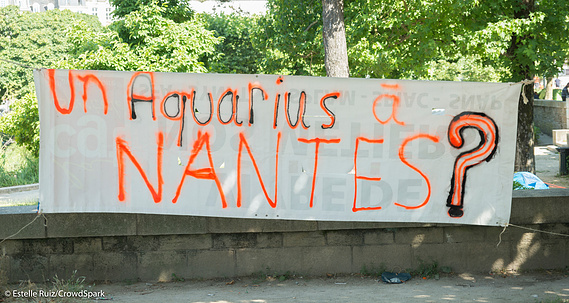 un Aquarius à
NANTES ?
© Estelle Ruiz/CrowdSpark